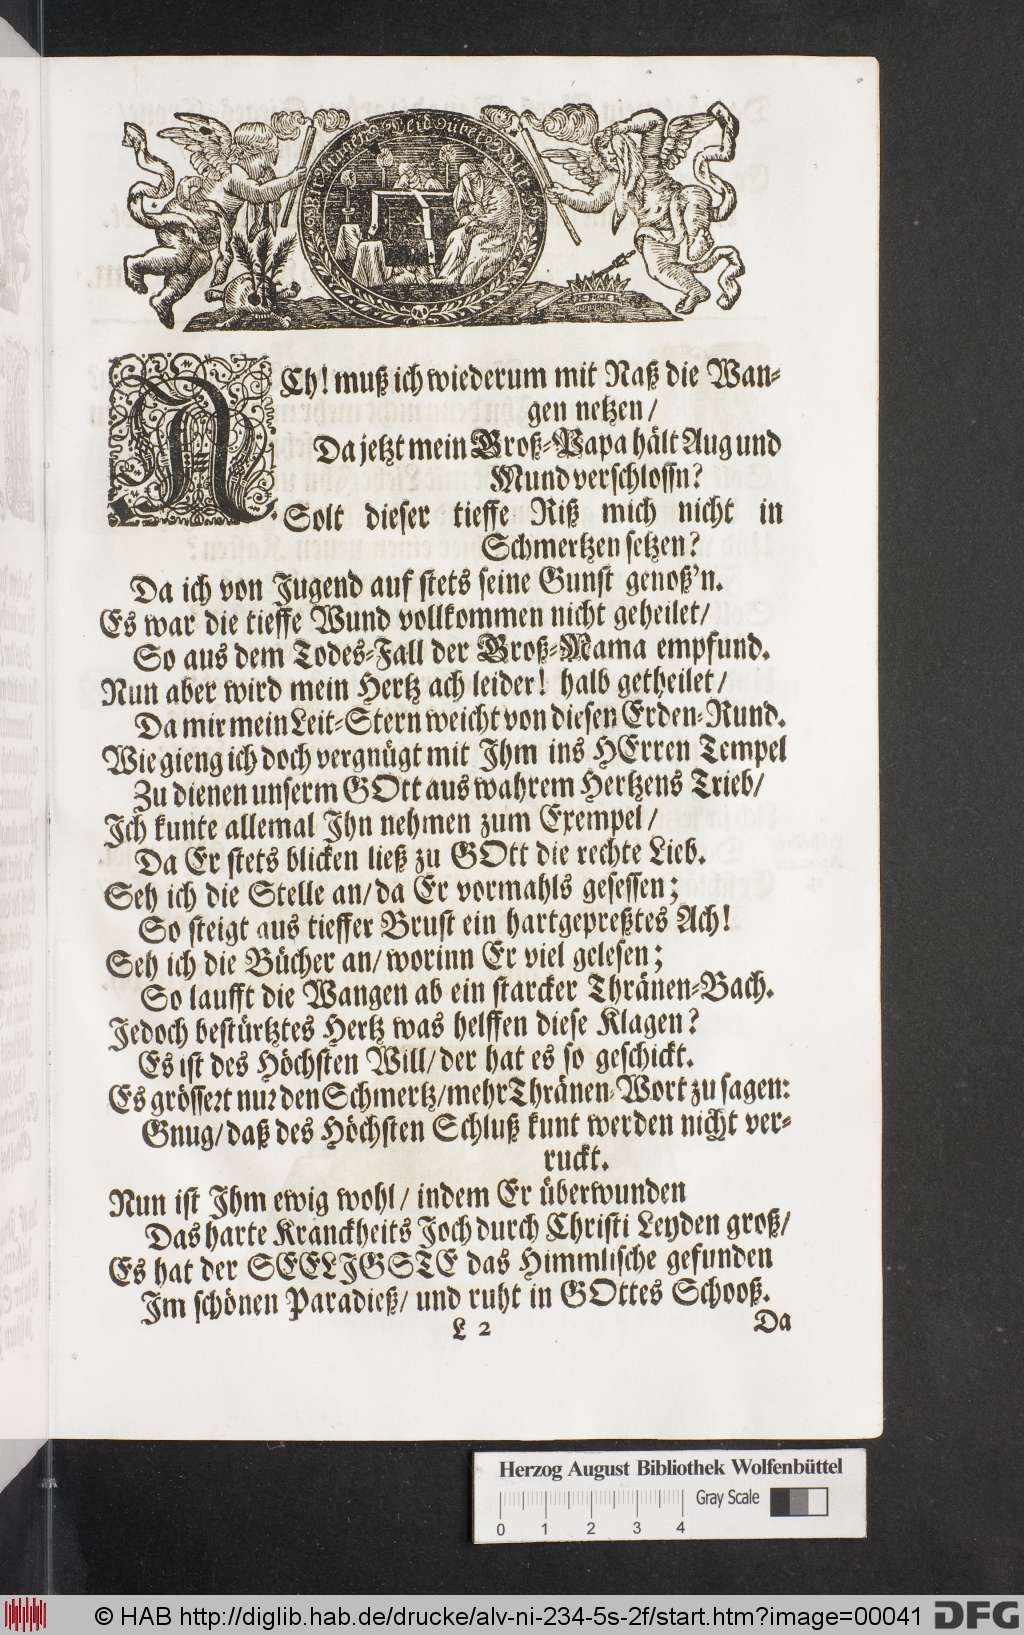 ACh! muß ich wiederum mit Naß die Wan-
gen netzen/
Da jetzt mein Groß-Papa hält Aug und
Mund verschlossn?
Solt dieser tieffe Riß mich nicht in
Schmertzen setzen?
Da ich von Jugend auf stets seine Gunst genoß'n.
Es war die tieffe Wund vollkommen nicht geheilet/
So aus dem Todes-Fall der Groß-Mama empfund.
Nun aber wird mein Hertz ach leider! halb getheilet/
Da mir mein Leit-Stern weicht von diesen Erden-Rund.
Wie gieng ich doch vergnügt mit Ihm ins HErren Tempel
Zu dienen unserm GOtt aus wahrem Hertzens Trieb/
Ich kunte allemal Ihn nehmen zum Exempel/
Da Er stets blicken ließ zu GOtt die rechte Lieb.
Seh ich die Stelle an/ da Er vormahls gesessen;
So steigt aus tieffer Brust ein hartgepreßtes Ach!
Seh ich die Bücher an/ worinn Er viel gelesen;
So laufft die Wangen ab ein starcker Thränen-Bach.
Jedoch bestürtztes Hertz was helffen diese Klagen?
Es ist des Höchsten Will/ der hat es so geschickt.
Es grössert nur den Schmertz/ mehr Thränen-Wort zu sagen:
Gnug/ daß des Höchsten Schluß kunt werden nicht ver-
ruckt.
Nun ist Ihm ewig wohl/ indem Er überwunden
Das harte Kranckheits Joch durch Christi Leyden groß/
Es hat der SEELIGSTE das Himmlische gefunden
Im schönen Paradieß/ und ruht in GOttes Schooß.
L 2 Da
Herzog August Bibliothek Wolfenbüttel
Gray Scale
0 1 2 3 4
© HAB http://diglib.hab.de/drucke/alv-ni-234-5s-2f/start.htm?image=00041 DFG